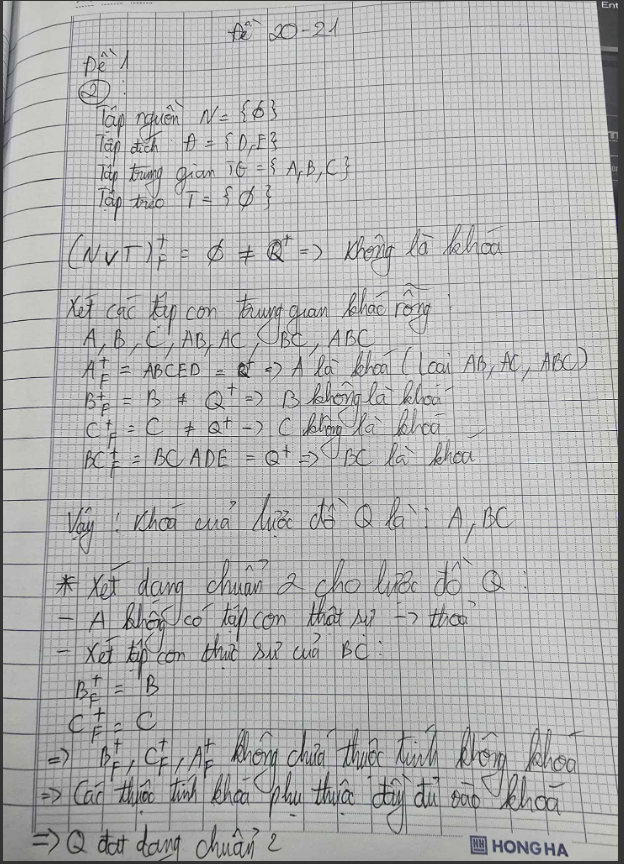 Đề 20-21
Đề 1
② :
Tập nguồn N = {∅}
Tập đích Đ = {D,E}
Tập trung gian TG = {A,B,C}
Tập treo T = {∅}
(NvT)⁺F = ∅ ≠ Q⁺ => Không là khoá
Xét các tập con trung gian khác rỗng:
A, B, C, AB, AC, BC, ABC
A⁺F = ABCED = Q⁺ => A là khoá (loại AB, AC, ABC)
B⁺F = B ≠ Q⁺ => B không là khoá
C⁺F = C ≠ Q⁺ -> C không là khoá
BC⁺F = BCADE = Q⁺ => BC là khoá
Vậy: Khoá của lược đồ Q là: A, BC
* Xét dạng chuẩn 2 cho lược đồ Q:
- A không có tập con thật sự -> thoả
- Xét tập con thực sự của BC:
B⁺F = B
C⁺F = C
=> B⁺F, C⁺F, A⁺F không chứa thuộc tính không khoá
=> Các thuộc tính khoá phụ thuộc đầy đủ vào khoá
=> Q đạt dạng chuẩn 2
HH HONG HA
Ent